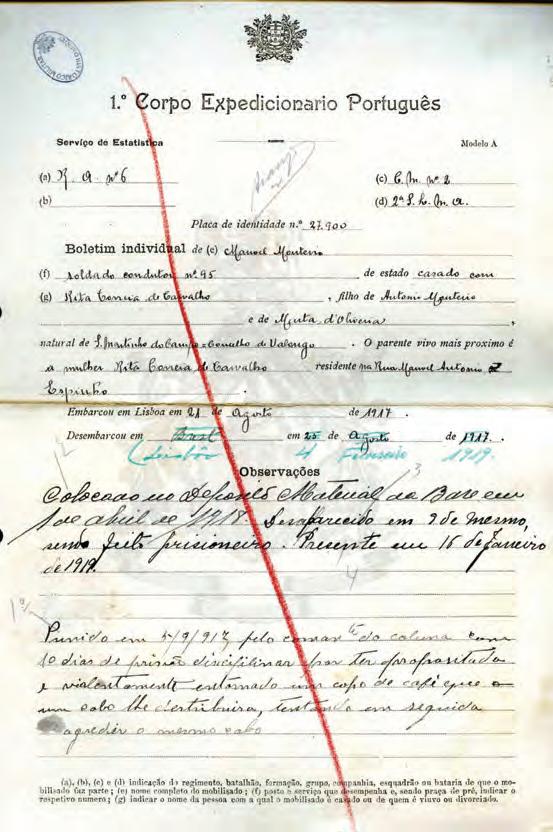 1.º Corpo Expedicionario Português
Serviço de Estatistica Modelo A
(a) R. A. nº 6 (c) C. M. nº 2
(b) (d) 2ª S. L. M. A.
Placa de identidade n.º 27.900
Boletim individual de (e) Manoel Monteiro
(f) soldado condutor nº 95 de estado casado com
(g) Rita Correia de Carvalho, filho de Antonio Monteiro
e de Mirta d'Oliveira,
natural de S. Martinho do Campo - Concelho de Valongo. O parente vivo mais proximo é
a mulher Rita Correia de Carvalho residente na Rua Manoel Antonio
Espinho.
Embarcou em Lisboa em 21 de Agosto de 1917.
Desembarcou em Brest em 25 de Agosto de 1917.
Lisbôa 4 Fevereiro 1919.
Observações
Colocado no Deposito Material da Base em
1 de abril de 1918. Desaparecido em 9 do mesmo,
sendo feito prisioneiro. Presente em 16 de Janeiro
de 1919.
Punido em 5/9/917 pelo comanᵗᵉ do coluna com
10 dias de prisão disciplinar por ter propositada
e violentamente entornado um copo de café que
um cabo lhe destribuira, tentando em seguida
agredir o mesmo cabo
(a), (b), (c) e (d) indicação do regimento, batalhão, formação, grupo, companhia, esquadrão ou bataria de que o mo-
bilisado faz parte; (e) nome completo do mobilisado; (f) posto e serviço que desempenha e, sendo praça de pré, indicar o
respetivo numero; (g) indicar o nome da pessoa com a qual o mobilisado é casado ou de quem é viuvo ou divorciado.